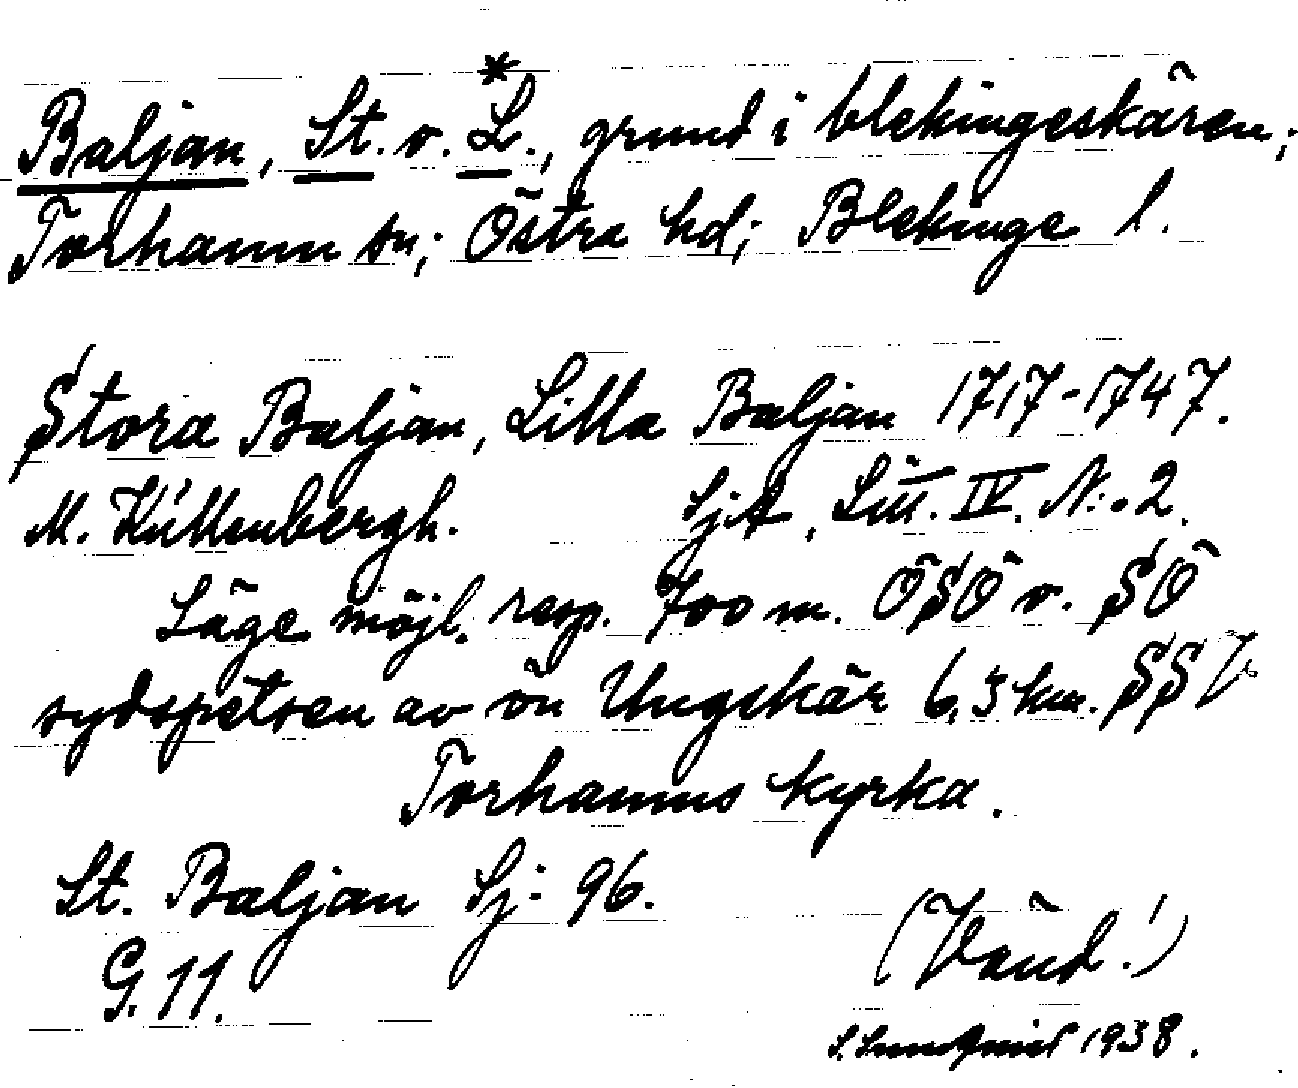 Baljan, St. o. L.*, grund i blekingeskären;
Torhamn sn; Östra hd; Blekinge l.
Stora Baljan, Lilla Baljan 1717-1747.
M. Küllenbergh. SjA, Litt. IV. N:o 2.
Läge möjl. resp. 700 m. OSO o. SO
sydspetsen av ön Ungskär 6,3 km. SSV
Torhamns kyrka.
St. Baljan Sj: 96.
G. 11.
(Vänd!)
S. Sundqvist 1938.